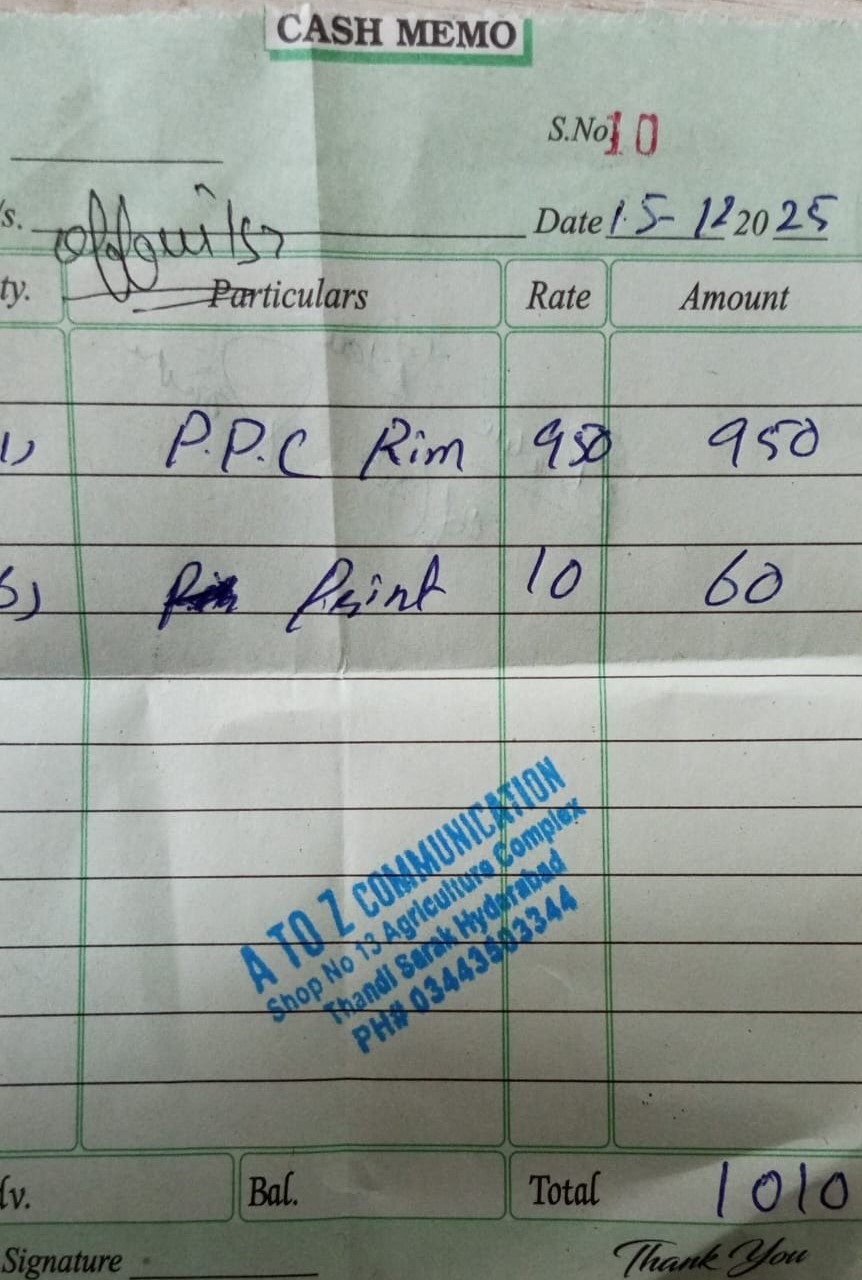 CASH MEMO
S.No 10
/s. Date 15-12 2025
ty. Particulars Rate Amount
1) P.P.C Rim 950 950
6) Print 10 60
A TO Z COMMUNICATION
Shop No 13 Agriculture Complex
Thandi Sarak Hyderabad
PH# 03443503344
dv. Bal. Total 1010
Signature
Thank You